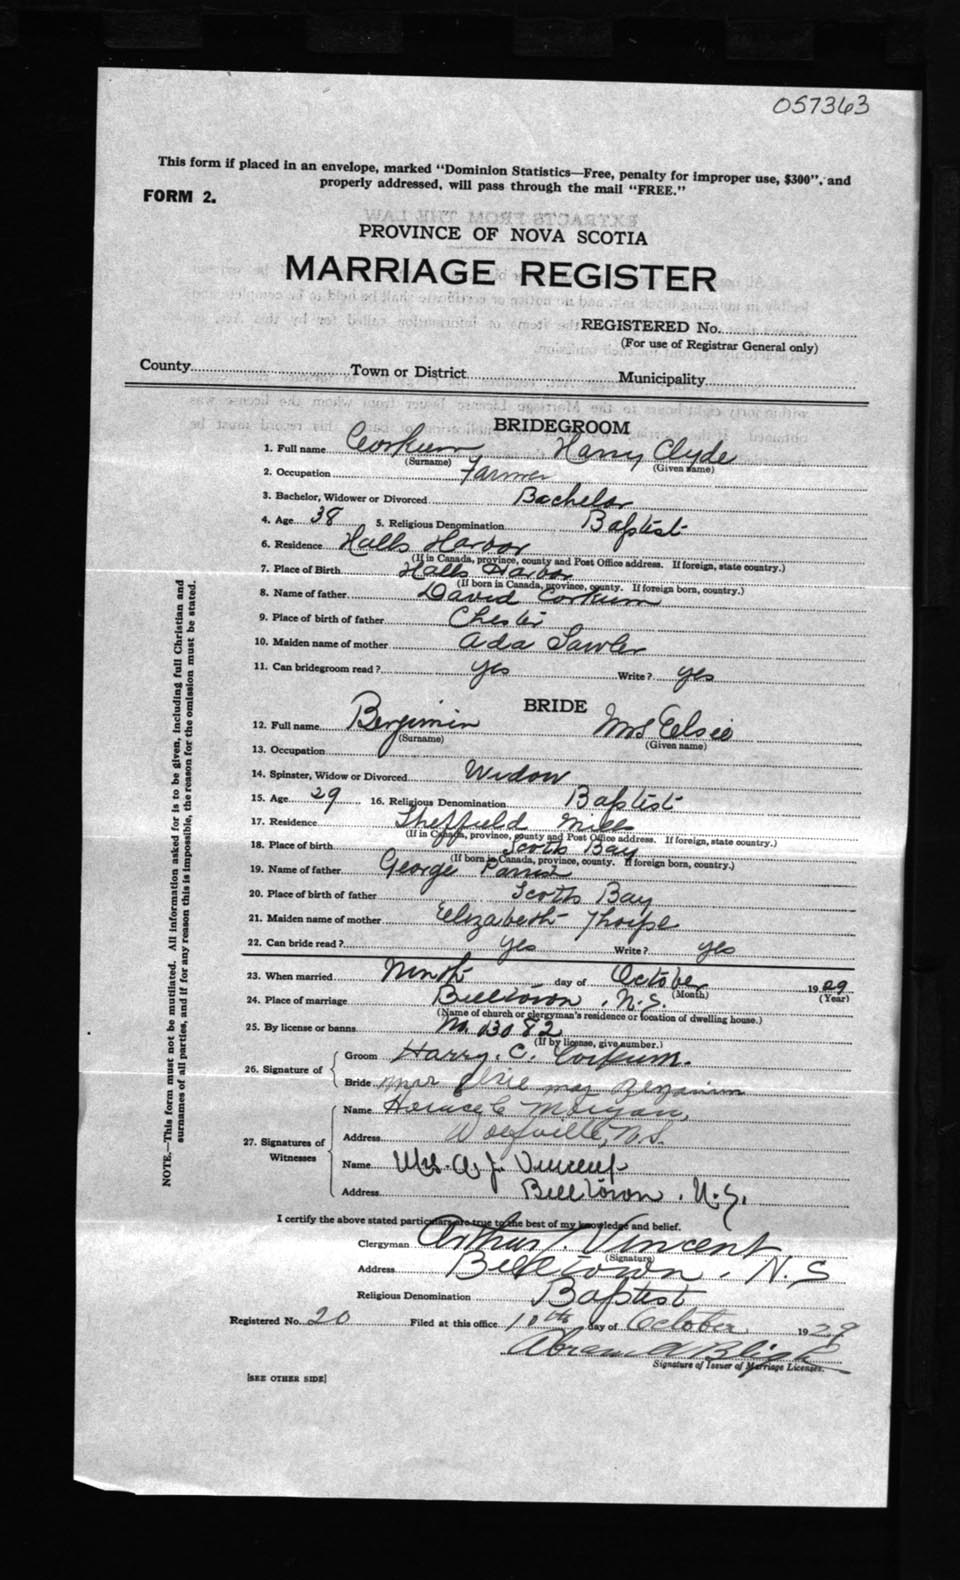 057363
This form if placed in an envelope, marked "Dominion Statistics—Free, penalty for improper use, $300", and
properly addressed, will pass through the mail "FREE."
FORM 2.
PROVINCE OF NOVA SCOTIA
MARRIAGE REGISTER
REGISTERED No.
(For use of Registrar General only)
County Town or District Municipality
BRIDEGROOM
1. Full name Corkum Harry Clyde
(Surname) (Given name)
2. Occupation Farmer
3. Bachelor, Widower or Divorced Bachelor
4. Age 38 5. Religious Denomination Baptist
6. Residence Halls Harbor
(If in Canada, province, county and Post Office address. If foreign, state country.)
7. Place of Birth Halls Harbor
(If born in Canada, province, county. If foreign born, country.)
8. Name of father David Corkum
9. Place of birth of father Chester
10. Maiden name of mother Ada Sawler
11. Can bridegroom read? yes Write? yes
BRIDE
12. Full name Benjimin Mrs Elsie
(Surname) (Given name)
13. Occupation
14. Spinster, Widow or Divorced Widow
15. Age 29 16. Religious Denomination Baptist
17. Residence Sheffield Mills
(If in Canada, province, county and Post Office address. If foreign, state country.)
18. Place of birth Scotts Bay
(If born in Canada, province, county. If foreign born, country.)
19. Name of father George
20. Place of birth of father Scotts Bay
21. Maiden name of mother Elizabeth Thorpe
22. Can bride read? yes Write? yes
23. When married Ninth day of October 1929
(Month) (Year)
24. Place of marriage Billtown, N.S.
(Name of church or clergyman's residence or location of dwelling house.)
25. By license or banns No. 13082
(If by license, give number.)
26. Signature of
Groom Harry. C. Corkum.
Bride Mrs Elsie May Benjamin
27. Signatures of Witnesses
Name Horace C Morgan,
Address Wolfville, N.S.
Name Mrs. A. J. Vincent
Address Billtown, N.S.
I certify the above stated particulars are true to the best of my knowledge and belief.
Clergyman Arthur J. Vincent
(Signature)
Address Billtown, N.S
Religious Denomination Baptist
Registered No. 20 Filed at this office 10th day of October 1929
Abram Bligh
Signature of Issuer of Marriage Licenses.
[SEE OTHER SIDE]
NOTE.—This form must not be mutilated. All information asked for is to be given, including full Christian and
surnames of all parties, and if for any reason this is impossible, the reason for the omission must be stated.